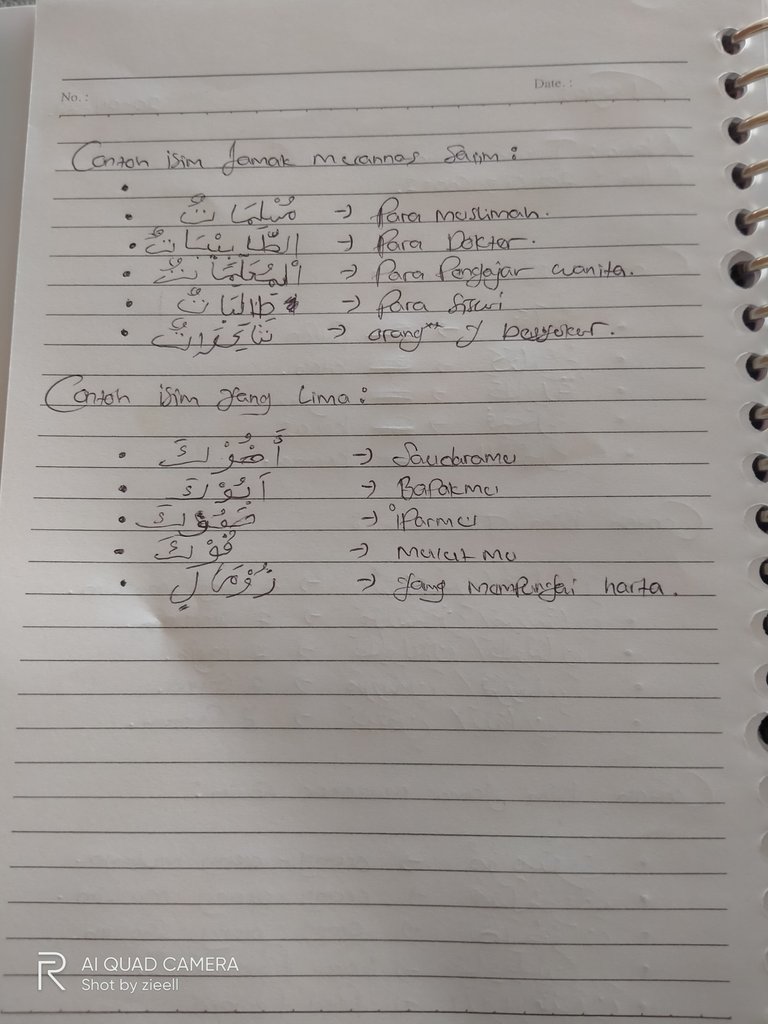 No. :
Date. :
Contoh isim Jamak muannas Salim :
مُسْلِمَاتٌ → Para muslimah.
الطَّبِيْبَاتُ → Para Dokter.
الْمُعَلِّمَاتُ → Para Pengajar wanita.
طَالِبَاتٌ → Para Siswi
→ orang" yg bersyukur.
Contoh isim yang Lima :
أَخُوْكَ → Saudaramu
أَبُوْكَ → Bapakmu
حَمُوْكَ → iparmu
فُوْكَ → mulutmu
ذُوْمَالٍ → yang mempunyai harta.
AI QUAD CAMERA
Shot by zieell